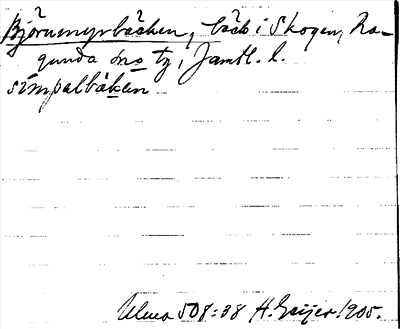 Björnmyrbäcken, bäck i Skogen, Ra-
gunda sno ty, Jämtl. l.
simpalbäkän
Ulma 508:38 H. Geijer 1905.